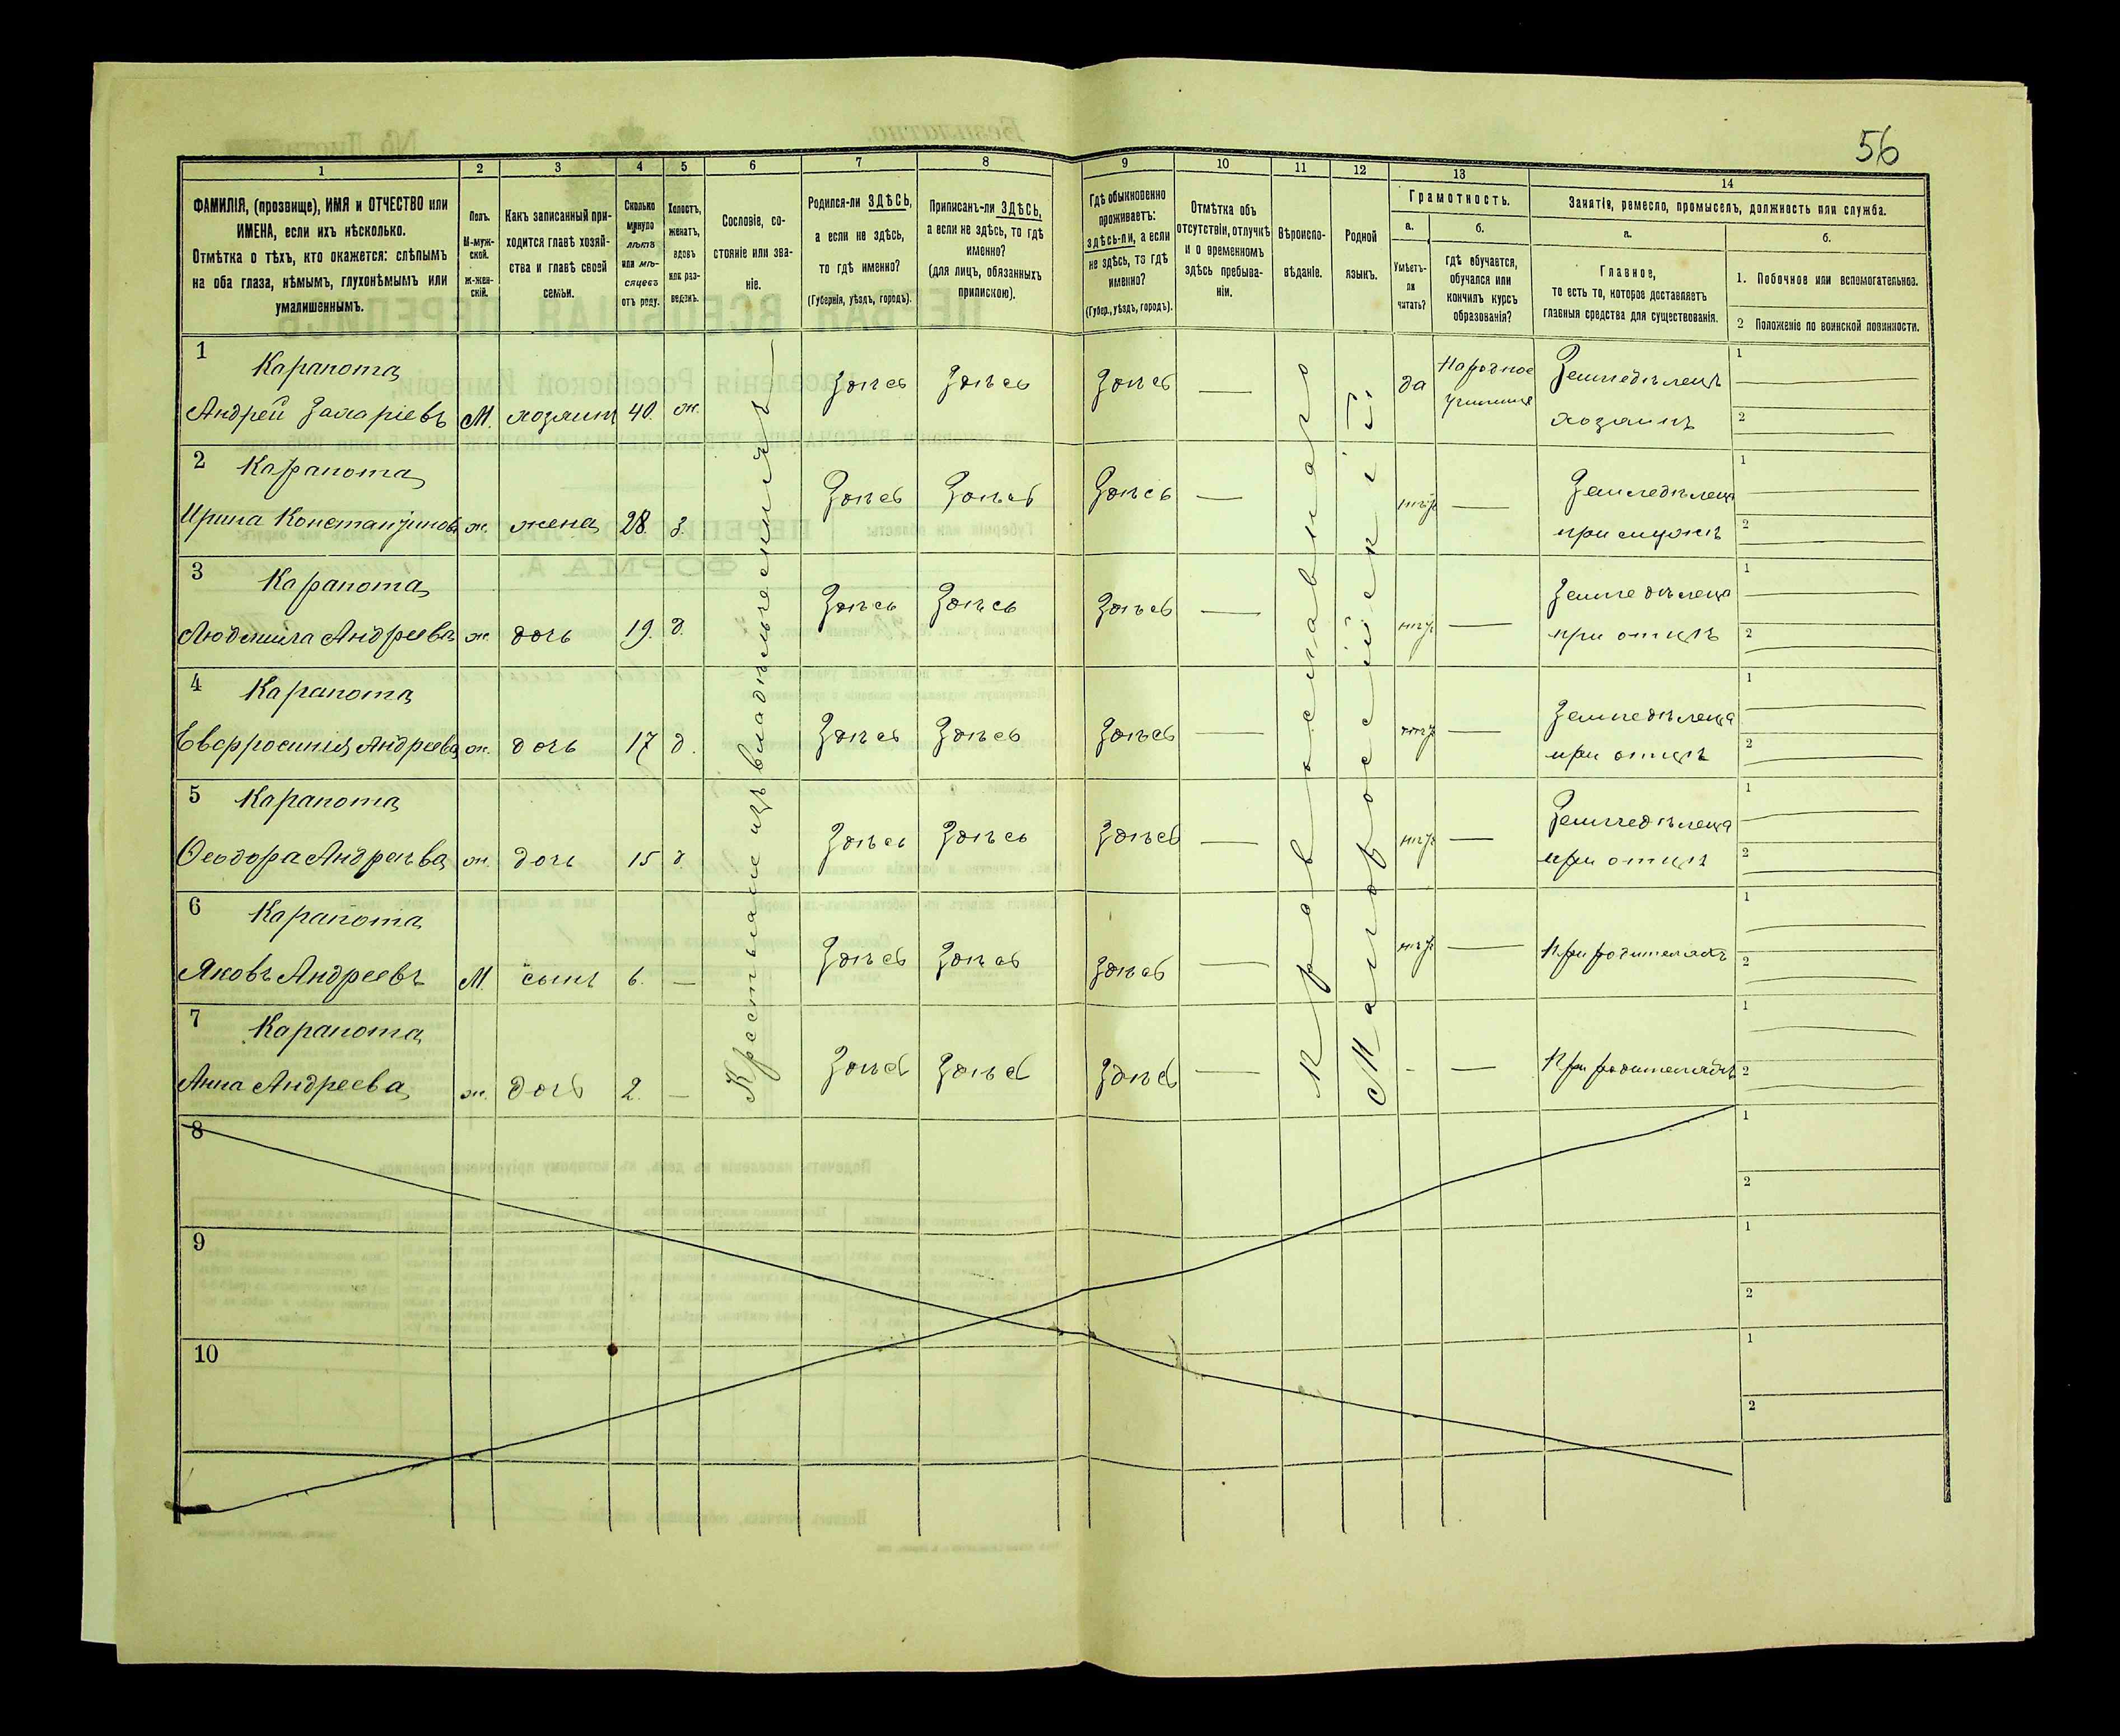 56
1 2 3 4 5 6 7 8 9 10 11 12 13 14
ФАМИЛІЯ, (прозвище), ИМЯ и ОТЧЕСТВО или
ИМЕНА, если ихъ нѣсколько.
Отмѣтка о тѣхъ, кто окажется: слѣпымъ
на оба глаза, нѣмымъ, глухонѣмымъ или
умалишеннымъ.
Полъ.
М-муж-
ской.
ж-жен-
скій.
Какъ записанный при-
ходится главѣ хозяй-
ства и главѣ своей
семьи.
Сколько
минуло
лѣтъ
или мѣ-
сяцевъ
отъ роду.
Холостъ,
женатъ,
вдовъ
или раз-
веденъ.
Сословіе, со-
стояніе или зва-
ніе.
Родился-ли ЗДѢСЬ,
а если не здѣсь,
то гдѣ именно?
(Губернія, уѣздъ, городъ).
Приписанъ-ли ЗДѢСЬ,
а если не здѣсь, то гдѣ
именно?
(для лицъ, обязанныхъ
припискою).
Гдѣ обыкновенно
проживаетъ:
здѣсь-ли, а если
не здѣсь, то гдѣ
именно?
(Губер., уѣздъ, городъ).
Отмѣтка объ
отсутствіи, отлучкѣ
и о временномъ
здѣсь пребыва-
ніи.
Вѣроиспо-
вѣданіе.
Родной
языкъ.
Грамотность.
а.
Умѣетъ-
ли
читать?
б.
гдѣ обучается,
обучался или
кончилъ курсъ
образованія?
Занятія, ремесло, промыселъ, должность или служба.
а.
Главное,
то есть то, которое доставляетъ
главныя средства для существованія.
б.
1. Побочное или вспомогательное.
2 Положеніе по воинской повинности.
Крестьяне изъ владѣльческихъ
Православнаго
Малороссійскій
1 Карапота Здѣсь Здѣсь Здѣсь — да Народное училище Земледѣлецъ 1
Андрей Захаріевъ М. хозяинъ 40. ж. хозяинъ 2
2 Карапота Здѣсь Здѣсь Здѣсь — — Земледѣлица 1
Ирина Константинова ж. жена 28. з. при мужѣ 2
3 Карапота Здѣсь Здѣсь Здѣсь — — Земледѣлица 1
Людмила Андреева ж. дочь 19. д. при отцѣ 2
4 Карапота Здѣсь Здѣсь Здѣсь — — Земледѣлица 1
Евфросинія Андреева ж. дочь 17 д. при отцѣ 2
5 Карапота Здѣсь Здѣсь Здѣсь — — Земледѣлица 1
Ѳеодора Андреева ж. дочь 15 д. при отцѣ 2
6 Карапота Здѣсь Здѣсь Здѣсь — — При родителяхъ 1
Яковъ Андреевъ М. сынъ 6. — 2
7 Карапота Здѣсь Здѣсь Здѣсь — - — При родителяхъ 1
Анна Андреева ж. дочь 2. — 2
8 1
2
9 1
2
10 1
2